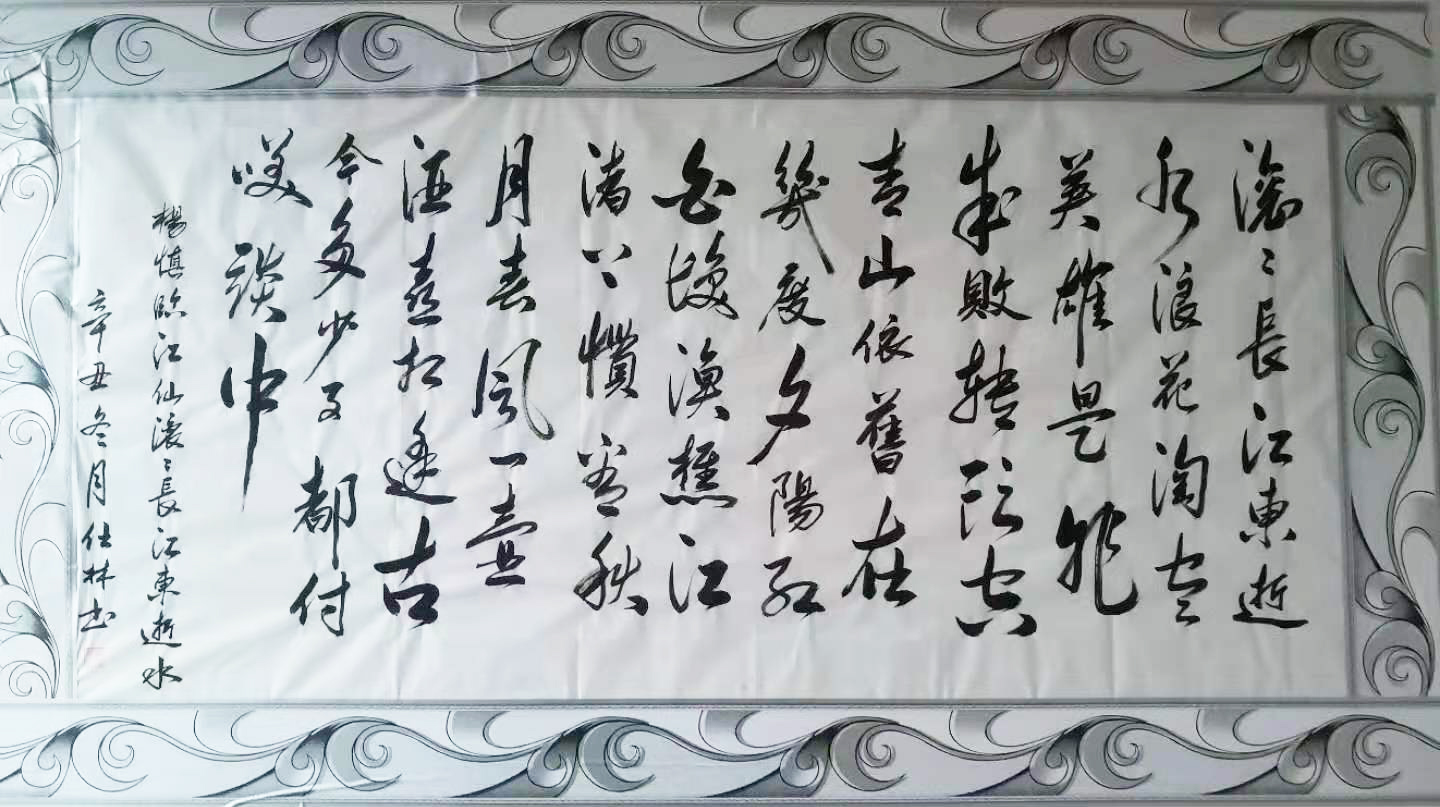 滾〻長江東逝
水浪花淘尽
英雄是非
成敗转頭空
青山依舊在
幾度夕陽紅
白髮漁樵江
渚上慣看秋
月春風一壶
酒喜相逢古
今多少事都付
笑談中
楊慎臨江仙滾〻長江東逝水
辛丑冬月仕林书